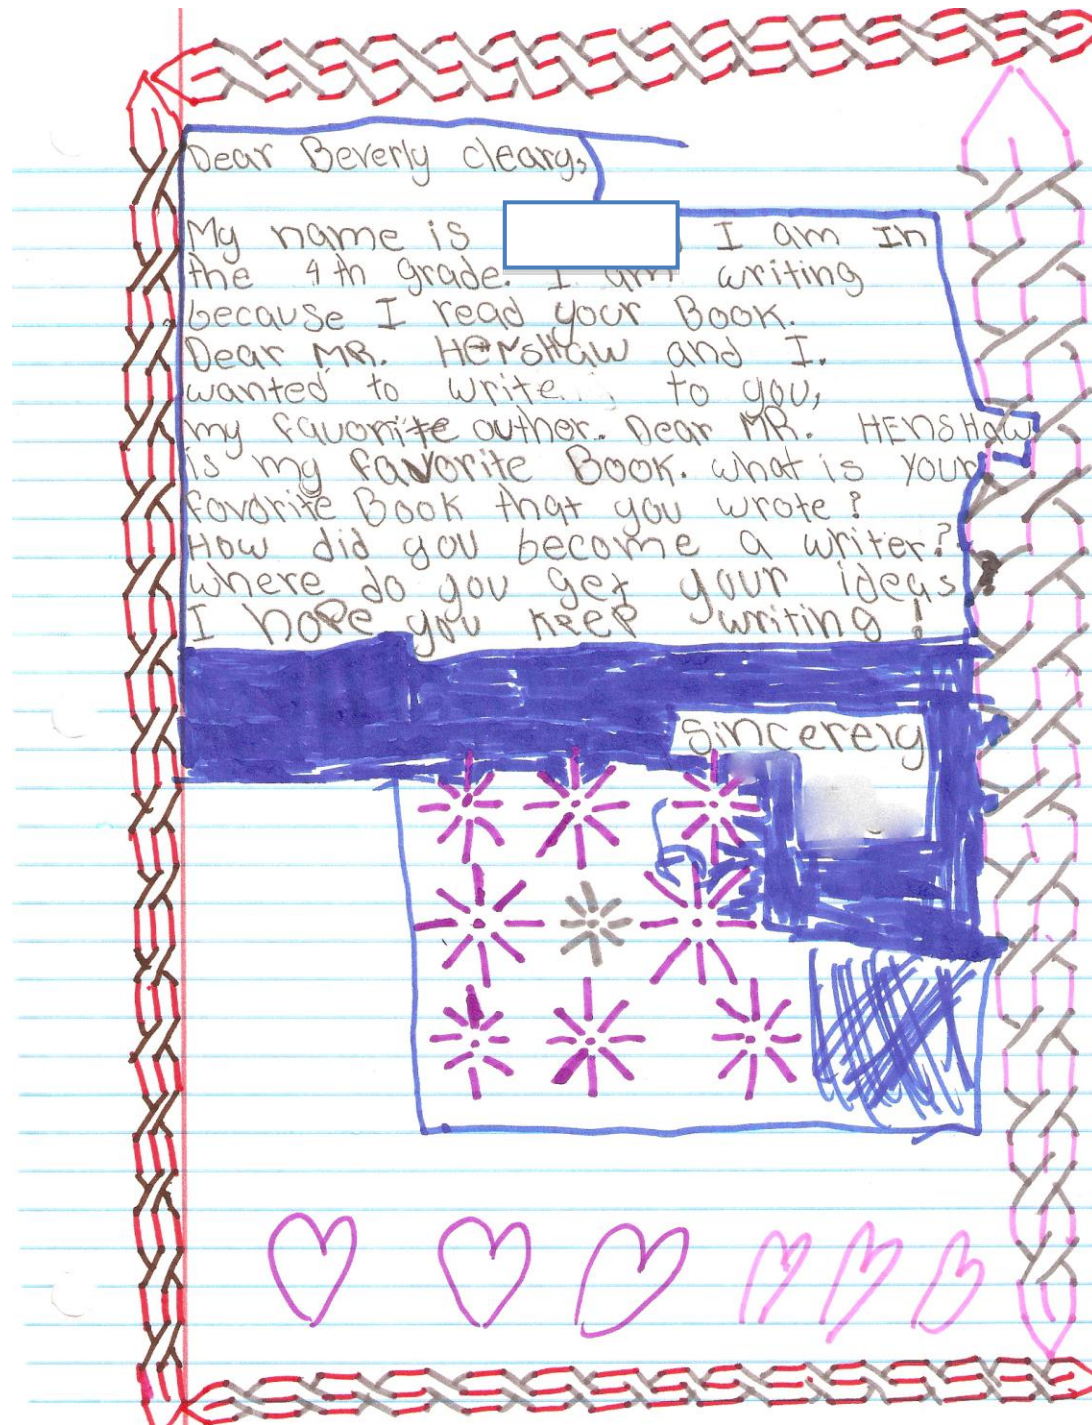 Dear Beverly cleary,
My name is I am In
the 4th grade. I am writing
because I read your Book.
Dear MR. HENSHAW and I.
wanted to write to you,
my favorite outher. Dear MR. HENSHAW
is my favorite Book. what is your
favorite Book that you wrote?
How did you become a writer?
where do you get your ideas
I hope you keep writing!
Sincerely